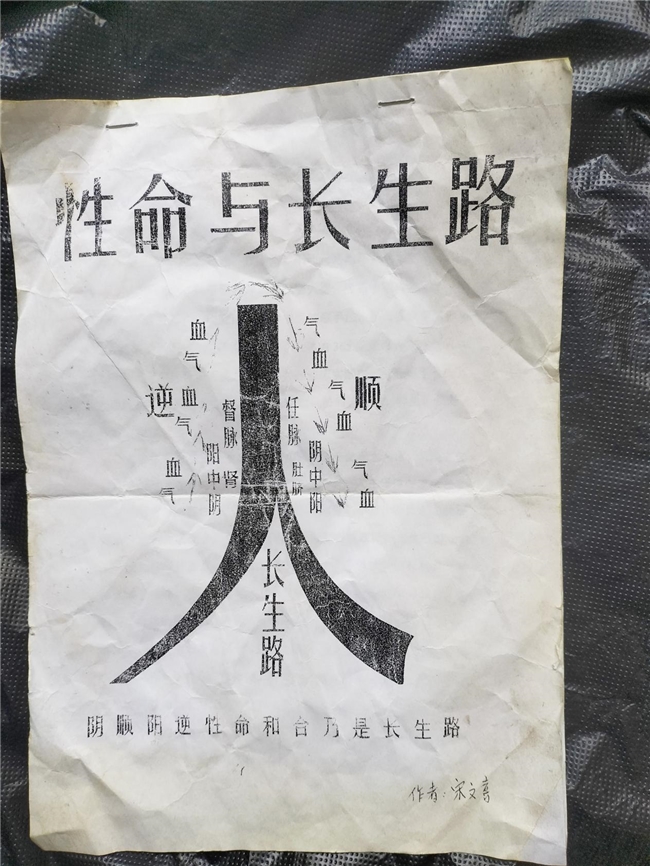 性命与长生路
血气
血气
血气
逆
督脉
肾
阳中阴
任脉
肚脐
阴中阳
气血
气血
气血
顺
长生路
阴顺阳逆性命和台乃是长生路
作者:宋文